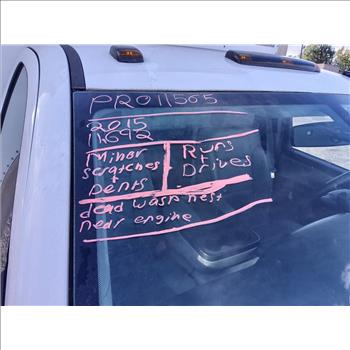 PRO11565
2015
1692
Minor
scratches
+
Dents
Runs
+
Drives
dead wasp nest
near engine